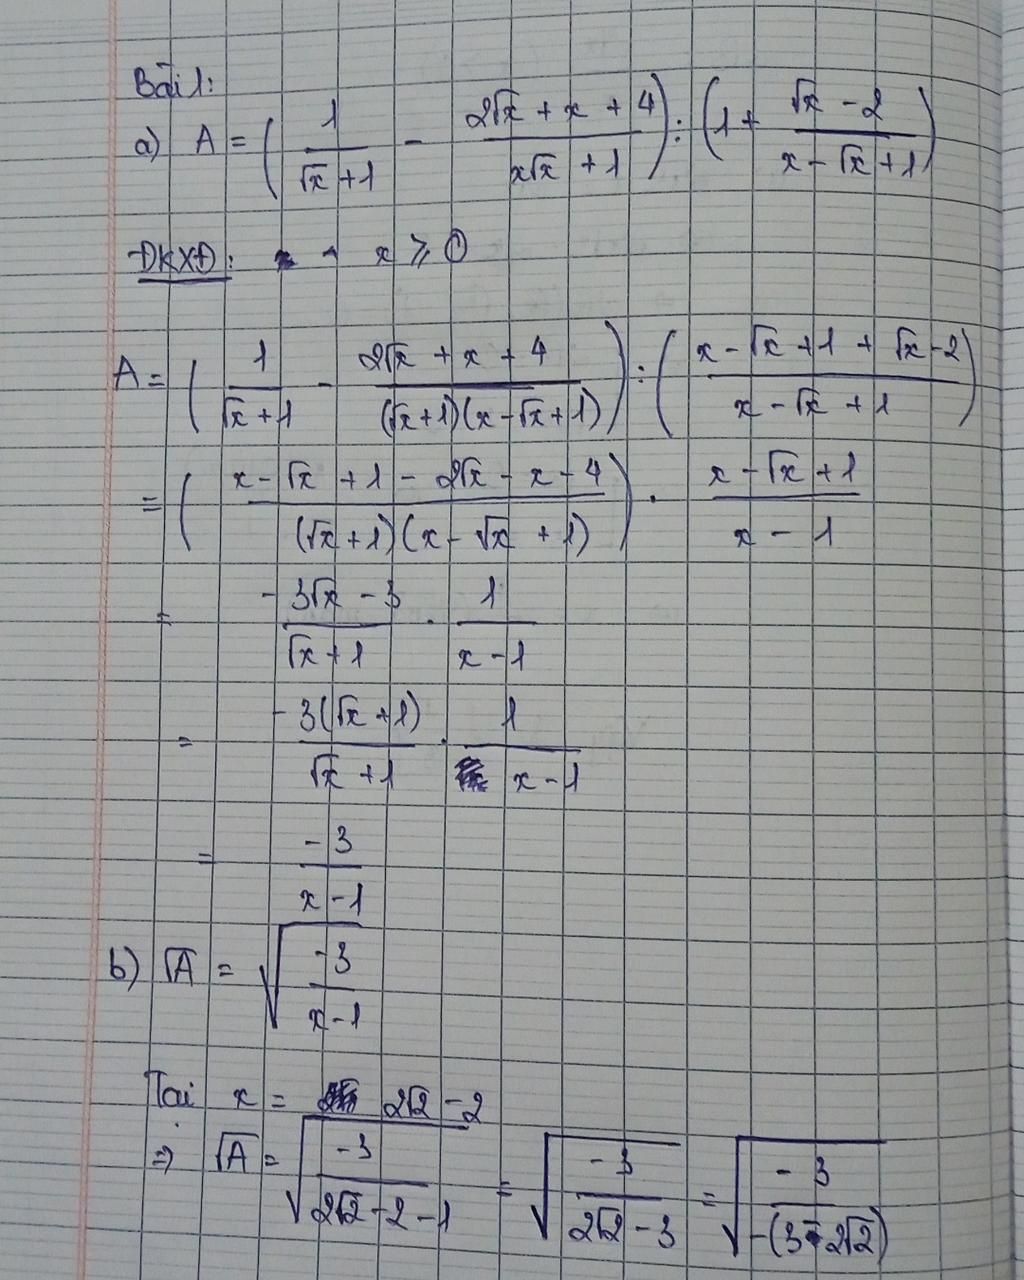 Bài 1:
a) A = ( 1/(√x + 1) - (2√x + x + 4)/(x√x + 1) ) : ( 1 + (√x - 2)/(x - √x + 1) )
ĐKXĐ: x ≥ 0
A = ( 1/(√x + 1) - (2√x + x + 4)/((√x + 1)(x - √x + 1)) ) : ( (x - √x + 1 + √x - 2)/(x - √x + 1) )
= ( (x - √x + 1 - 2√x - x - 4)/((√x + 1)(x - √x + 1)) ) . (x - √x + 1)/(x - 1)
= (-3√x - 3)/(√x + 1) . 1/(x - 1)
= (-3(√x + 1))/(√x + 1) . 1/(x - 1)
= -3/(x - 1)
b) √A = √(-3/(x - 1))
Tại x = 2√2 - 2
⇒ √A = √(-3/(2√2 - 2 - 1)) = √(-3/(2√2 - 3)) = √(-3/(-(3 - 2√2)))